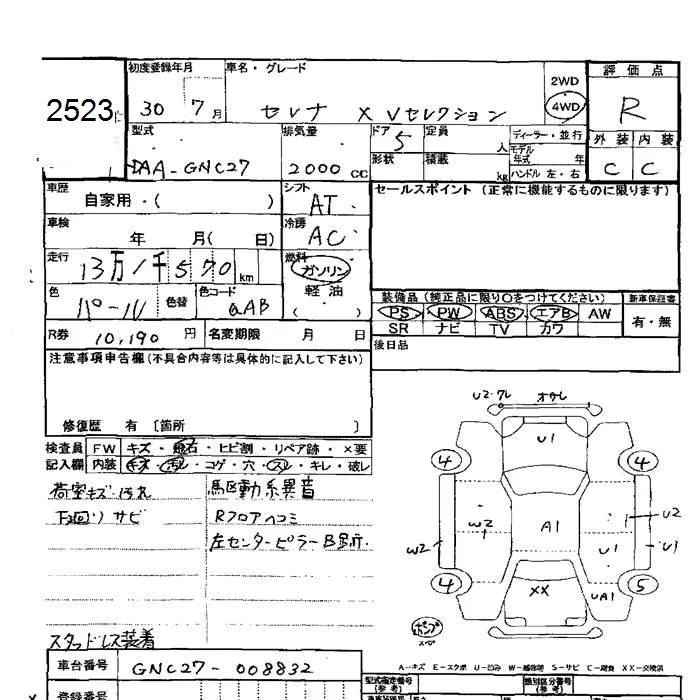 2523
初度登録年月 車名・グレード 2WD 評価点
30 7月 セレナ X Vセレクション 4WD R
型式 排気量 ドア 5 定員 人 ディーラー・並行 外装 内装
DAA-GNC27 2000 CC 形状 積載 kg モデル年式 年 ハンドル 左・右 C C
車歴 シフト セールスポイント (正常に機能するものに限ります)
自家用・( ) AT
車検 冷房
年 月( 日) AC
走行 燃料
13万1千570km ガソリン
色 パール 色替 色コード QAB 軽油
( )
装備品 (純正品に限り〇をつけてください) 新車保証書
PS PW ABS エアB AW 有・無
SR ナビ TV カワ
R券 10,190 円 名変期限 月 日 後日品
注意事項申告欄 (不具合内容等は具体的に記入して下さい)
修復歴 有 [箇所 ]
検査員 FW キズ・飛石・ヒビ割・リペア跡・×要
記入欄 内装 キズ・汚レ・コゲ・穴・スレ・キレ・破レ
荷室キズ・汚れ 駆動系異音
下廻りサビ Rフロアヘコミ
左センターピラー
スタッドレス装着
U2・ワレ
U1
4 4
W2 A1 U2
W2 U1 U1
4 XX UA1 5
A-キズ E-エクボ U-凹み W-補修跡 S-サビ C-腐食 XX-交換済
車台番号 GNC27-008832 型式指定番号 (参考) 類別区分番号 (参考)
登録番号